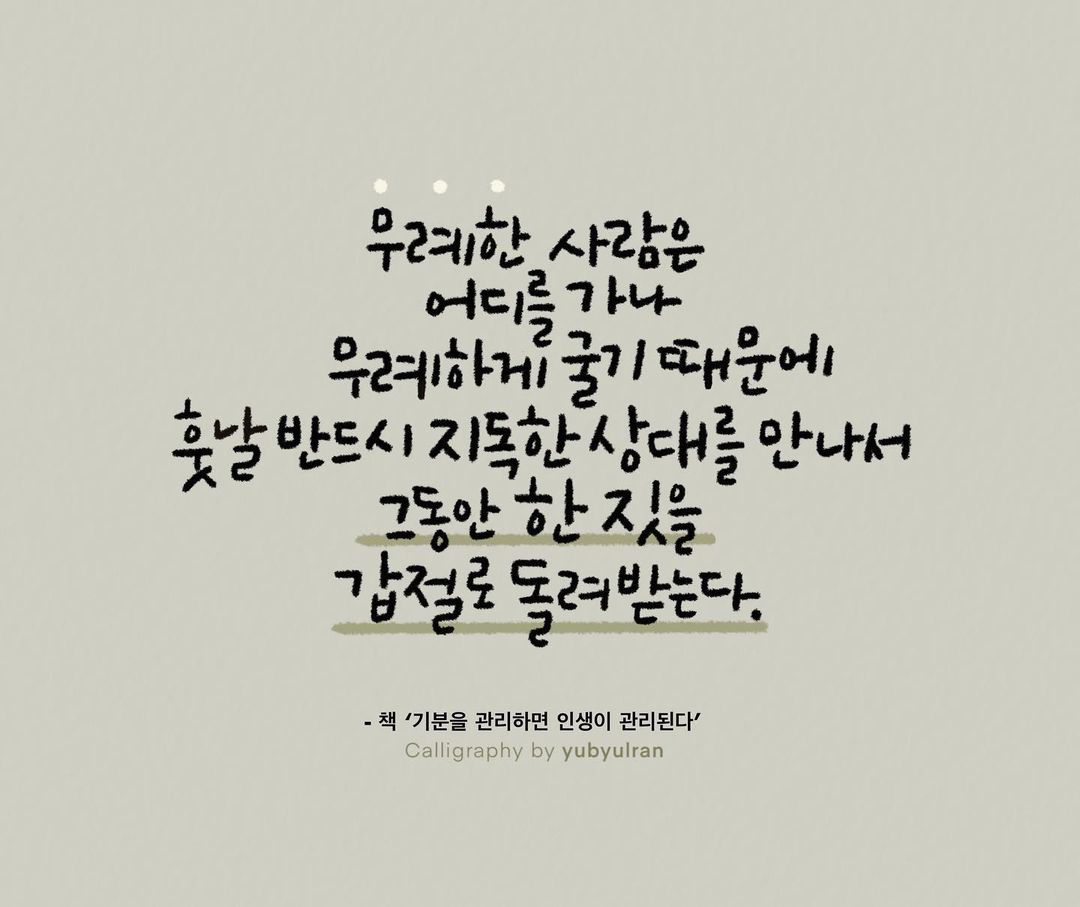 무례한 사람은
어디를 가나
무례하게 굴기 때문에
훗날 반드시 지독한 상대를 만나서
그동안 한 짓을
갑절로 돌려받는다.
- 책 ‘기분을 관리하면 인생이 관리된다’
Calligraphy by yubyulran